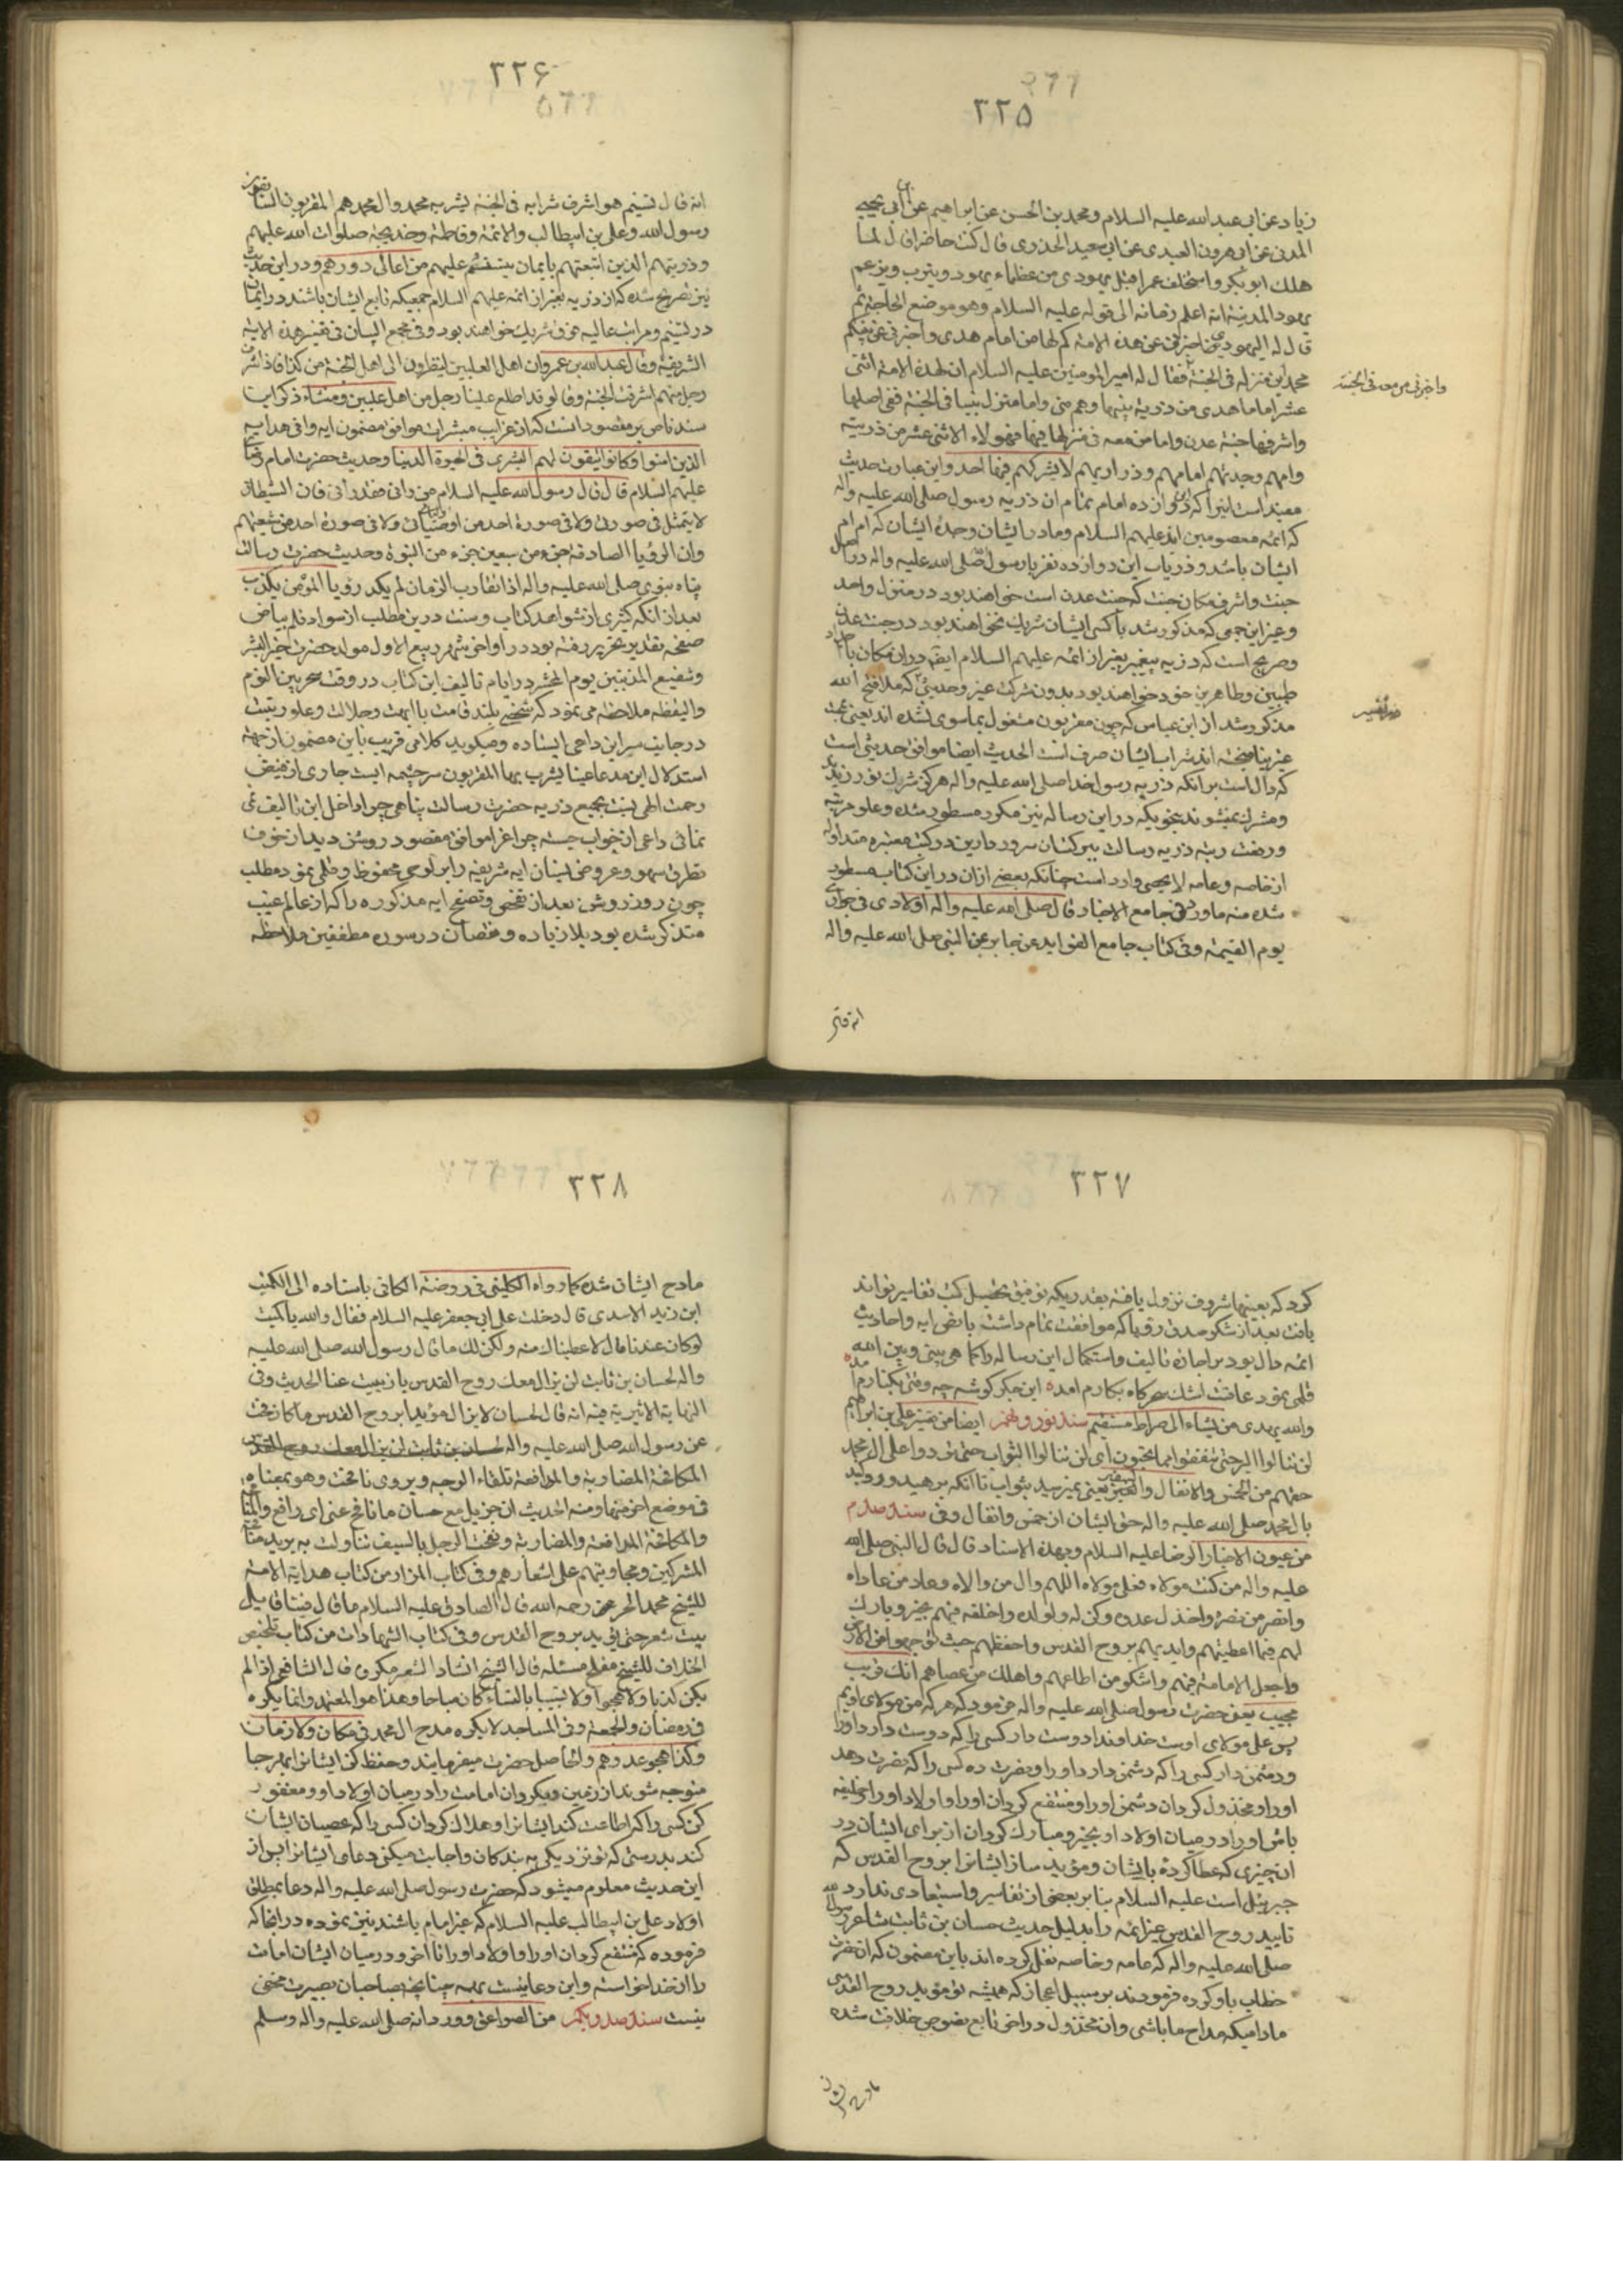 ۲۲۵
زیاد عن ابی عبدالله علیه السلام ومحمد بن الحسن عن ابراهیم عن ابی یحیی
المدنی عن ابی هرون العبدی عن ابی سعید الخدری قال کنت حاضرا لما
هلک ابو بکر واستخلف عمر اقبل یهودی من عظماء یهود ویثرب ویزعم
یهود المدینه انه اعلم زمانه الی قوله علیه السلام وهو موضع الحاجة ثم
قال له الیهودی اخبرنی عن هذه الامة کم لها من امام هدی واخبرنی عن نبیکم
محمد این منزله فی الجنة فقال له امیرالمومنین علیه السلام ان لهذه الامة اثنی
واخبرنی من معه فی الجنة
عشر اماما هدی من ذریة نبیها وهم منی واما منزل نبینا فی الجنة ففی افضلها
واشرفها جنة عدن واما من معه فی منزله فیها فهولاء الاثنی عشر من ذریته
وامهم وجدتهم امامهم وذراریهم لا یشرکهم فیها احد واین عبارت حدیث
مفید است اینرا که دوازده امام تمام از ذریه رسول صلی الله علیه واله
که ائمه معصومین اند علیهم السلام ومادر ایشان وجده ایشان که ام ام
ایشان باشد وذریات این دوازده نفر با رسول صلی الله علیه واله در افضل
جنت واشرف مکان جنت که جنت عدن است خواهند بود در منزل واحد
وغیر این جمعی که مذکور شد با کسی ایشان شریک نخواهند بود در جنت عدن
وصریح است که ذریه پیغمبر بغیر از ائمه علیهم السلام ایضا در ان مکان با اجداد
طیبین وطاهرین خود خواهند بود بدون شرکت غیر وحدیثی که ملا فتح الله
مذکور شد از ابن عباس که چون مقربون مشغول بماسوی نشده اند یعنی محبت
غیر نیامیخته اند شراب ایشان صرف است الحدیث ایضا موافق حدیثی است
که دال است بر آنکه ذریه رسول خدا صلی الله علیه واله هرگز شرک نورزیدند
ومشرک نمیشوند بنحویکه در این رساله نیز مکرر مسطور شده وعلو مرتبه
ورفعت رتبه ذریه رسالت بیرکتشان سرور دارین در کتب معتبره متداوله
از خاصه وعامه لا یحصی وارد است چنانکه بعضی ازان در این کتاب مسطور
شده منه ما ورد فی جامع الاخبار قال صلی الله علیه واله اولادی فی جواری
یوم القیمة وفی کتاب جامع الفواید عن جابر عن النبی صلی الله علیه واله
انه قال
۲۲۶
انه قال تسنیم هو اشرف شراب فی الجنة یشربه محمد وال محمد هم المقربون السابقون
رسول الله وعلی بن ابیطالب والائمة وفاطمة وخدیجة صلوات الله علیهم
وذریتهم الذین اتبعتهم بایمان یتسنم علیهم من اعالی دورهم ودر این حدیث
نیز تصریح شده که ان ذریه بغیر از ائمه علیهم السلام جمعیکه تابع ایشان باشند در ایمان
در تسنیم ومراتب عالیه غرف شریک خواهند بود وفی مجمع البیان فی تفسیر هذه الایة
الشریفة وقال عبدالله بن عمر وان اهل العلیین لینظرون الی اهل الجنة من کذا فاذا اشرف
رجل منهم اشرقت الجنة وقالوا قد اطلع علینا رجل من اهل علیین ومنشاء ذکر این
سند ناص بر مقصود انست که از غرایب مبشرات موافق مضمون ایه وافی هدایه
الذین امنوا وکانوا یتقون لهم البشری فی الحیوة الدنیا وحدیث حضرت امام رضا
علیهم السلام قال قال رسول الله علیه السلام من رانی فقد رانی فان الشیطان
لا یتمثل فی صورتی ولا فی صورة احد من اوصیائی ولا فی صورة احد من شیعتهم
وان الرؤیا الصادقة جزء من سبعین جزء من النبوة وحدیث حضرت رسالت
پناه نبوی صلی الله علیه واله اذا تقارب الزمان لم یکد رؤیا المؤمن یکذب
بعد از انکه کثیری از شواهد کتاب وسنت درین مطلب از سواد قلم ببیاض
صفحه تقدیر تحریر رفته بود در اواخر شهر ربیع الاول مولد حضرت خیر البشر
وشفیع المذنبین یوم المحشر در ایام تالیف این کتاب در وقت سحر بین النوم
والیقظه ملاحظه می نمود که شخصی بلند قامت با ابهت وجلالت وعلو رتبت
در جانب سر این داعی ایستاده ومیگوید کلامی قریب باین مضمون از جهة
استدلال این مدعا عینا یشرب بها المقربون سرچشمه ایست جاری از فیض
رحمت الهی نسبت بجمیع ذریه حضرت رسالت پناهی چرا داخل این تالیف نمی
نمائی داعی از خواب جسته چو اغر اموافق مقصود روشن دید از خوف
تطرق سهو وعروض نسیان ایه شریفه را بر لوحی محفوظ وقلمی نمود مطلب
چون روز روشن بعد از تفحص وتصفح ایه مذکوره را که از عالم غیب
متذکر شده بود بلا زیاده ونقصان در سوره مطففین ملاحظه
۲۲۷
کرد که بعینها شرف نزول یافته بقدریکه توفیق تحصیل کتب تفاسیر تواند
یافت بعد از شکر صدق رؤیا که موافقت تمام داشت با نص ایه واحادیث
ائمه دال بود بر اجازه تالیف واستکمال این رساله را کما هی بینی وبین الله
قلمی نمود عاقبت اشک سحرگاه بکارم امده این جگر گوشه چه ومنی بکنارم آمده
والله یهدی من یشاء الی صراط مستقیم سند نود ونهم ایضا من تفسیر علی بن ابراهیم
لن تنالوا البر حتی تنفقوا مما تحبون ای لن تنالوا الثواب حتی تردوا علی ال محمد
حقهم من الخمس والانفال والفیئ یعنی نمیرسید بثواب تا انکه بدهید ورد کنید
بال محمد صلی الله علیه واله حق ایشان از خمس وانفال وفیئ سند صدم
من عیون الاخبار الرضا علیه السلام وبهذه الاسناد قال قال النبی صلی الله
علیه واله من کنت مولاه فعلی مولاه اللهم وال من والاه وعاد من عاداه
وانصر من نصره واخذل عدوه وکن له ولولده واخلفه فیهم بخیر وبارک
لهم فیما اعطیتهم وایدهم بروح القدس واحفظهم حیث توجهوا من الارض
واجعل الامامة فیهم واشکر من اطاعهم واهلک من عصاهم انک قریب
مجیب یعنی حضرت رسول صلی الله علیه واله می فرمود که هر که من مولای اویم
پس علی مولای اوست خداوندا دوست دار کسی را که دوست دارد اورا
ودشمن دار کسی را که دشمن دارد اورا ونصرت ده کسی را که نصرت دهد
اورا ومخذول گردان دشمن اورا ومنتفع گردان اورا واولاد اورا وخلیفه
باش اورا در میان اولاد او بخیر ومبارک گردان از برای ایشان در
ان چیزی که عطا کرده بایشان ومؤید ساز ایشانرا بروح القدس که
جبرئیل است علیه السلام بنا بر بعضی از تفاسیر واستبعادی ندارد
تایید روح القدس غیر ائمه را بدلیل حدیث حسان بن ثابت شاعر رسول الله
صلی الله علیه واله که عامه وخاصه نقل کرده اند باین مضمون که ان حضرت
خطاب باو کرده فرمودند بر سبیل اعجاز که همیشه تو مؤید بروح القدسی
مادامیکه مداح ما باشی وان مخذول در اخر تابع بضوحی خلافت شده
مادح ایشان
۲۲۸
مادح ایشان شده کما رواه الکلینی فی روضة الکافی باسناده الی الکمیت
ابن زید الاسدی قال دخلت علی ابی جعفر علیه السلام فقال والله یا کمیت
لو کان عندنا مال لاعطیناک منه ولکن لک ما قال رسول الله صلی الله علیه
واله لحسان بن ثابت لن یزال معک روح القدس ما ذببت عنا الحدیث وفی
النهایة الاثیریة فیه انه قال لحسان لا یزال مؤیدا بروح القدس ما کافحت
عن رسول الله صلی الله علیه واله حسان بن ثابت لن یزال معک روح القدس
المکافحة المضاربة والمدافعة تلقاء الوجه ویروی نافحت وهو بمعناه
فی موضع اخر منها ومنه الحدیث ان جبریل مع حسان ما نافح عنی ای دافع والمنافحة
والمکافحة المدافعة والمضاربة ونفحت الرجل بالسیف تناولت به یرید منافحة
المشرکین ومجاوبتهم علی اشعارهم وفی کتاب المزار من کتاب هدایة الامة
للشیخ محمد الحر عن رحمه الله قال الصادق علیه السلام ما قال فینا قائل
بیت شعر حتی یؤید بروح القدس وفی کتاب الشهادات من کتاب تلخیص
الخلاف للشیخ مفلح مسئله قال الشیخ انشاد الشعر مکروه قال الشافعی اذا لم
یکن کذبا ولا هجوا ولا تشبیبا بالنساء کان مباحا وهذا هو المعتمد وانما یکره
فی رمضان والجمعة وفی المساجد لا یکره مدح ال محمد فی مکان ولا زمان
وکذا هجو عدوهم والحاصل حضرت میفرمایند وحفظ کن ایشانرا بهر جا
متوجه شوند از زمین وبگردان امامت را در میان اولاد او ومغفور
کن کسی را که اطاعت کند ایشانرا وهلاک گردان کسی را که عصیان ایشان
کند بدرستی که تو نزدیکی به بندگان واجابت میکنی دعای ایشانرا پس از
این حدیث معلوم میشود که حضرت رسول صلی الله علیه واله دعا بمطلق
اولاد علی بن ابیطالب علیه السلام که غیر امام باشند نیز نموده در انجا که
فرموده که منتفع گردان اورا واولاد اورا تا اخر ودر میان ایشان امامت
را از خدا خواسته واین دعا نیست بهمه چنانچه بصاحبان بصیرت مخفی
نیست سند صد ویکم من الصواعق وورد انه صلی الله علیه واله وسلم